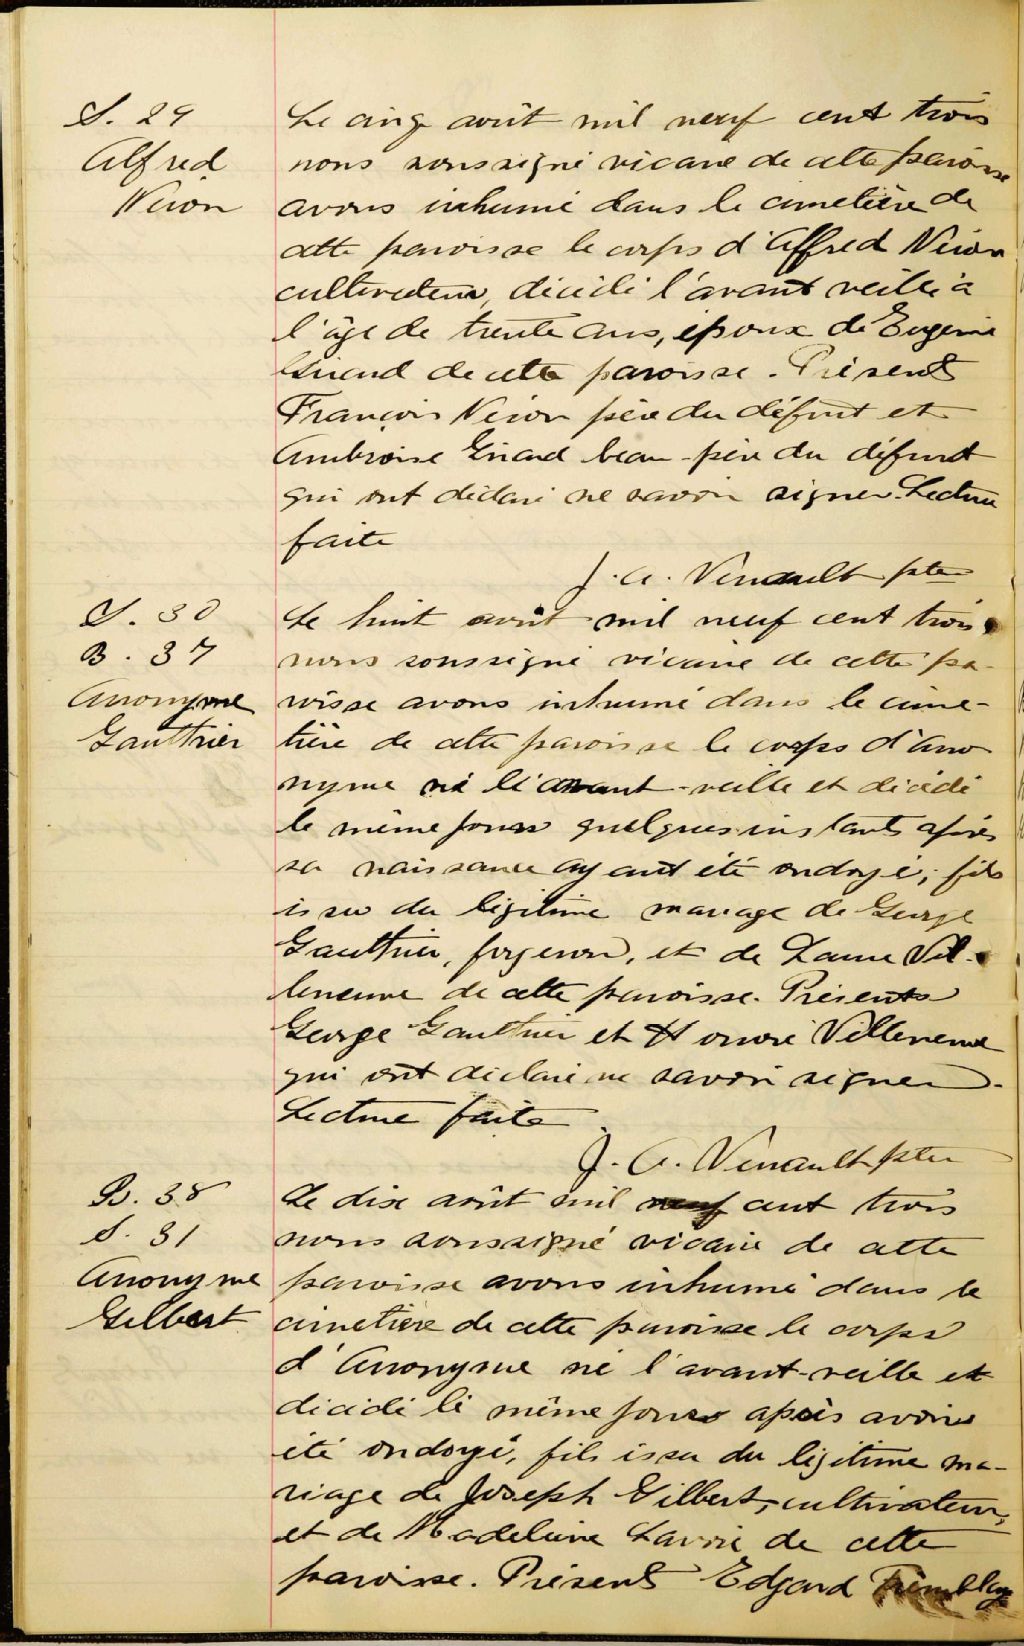 S. 29
Alfred
Néron
Le cinq août mil neuf cent trois
nous soussigné vicaire de cette paroisse
avons inhumé dans le cimetière de
cette paroisse le corps d'Alfred Néron
cultivateur, décédé l'avant veille à
l'âge de trente ans, époux de Eugenie
Girard de cette paroisse. Présents
François Néron père du défunt et
Ambroise Girard beau-père du défunt
qui ont déclaré ne savoir signer. Lecture
faite
J. A. Verreault ptre
S. 30
B. 37
Anonyme
Gauthier
Le huit août mil neuf cent trois
nous soussigné vicaire de cette pa-
roisse avons inhumé dans le cime-
tière de cette paroisse le corps d'Ano
nyme né l'avant-veille et décédé
le même jour quelques instants après
sa naissance ayant été ondoyé, fils
issu du légitime mariage de George
Gauthier, forgeron, et de Laure Vil-
leneuve de cette paroisse. Présents
George Gauthier et Honoré Villeneuve
qui ont déclaré ne savoir signer.
Lecture faite.
J. A. Verreault ptre
B. 38
S. 31
Anonyme
Gilbert
Le dix août mil neuf cent trois
nous soussigné vicaire de cette
paroisse avons inhumé dans le
cimetière de cette paroisse le corps
d'Anonyme né l'avant-veille et
décédé le même jour après avoir
été ondoyé, fils issu du légitime ma-
riage de Joseph Gilbert, cultivateur,
et de Madeleine Lavoie de cette
paroisse. Présents Edgard Tremblay